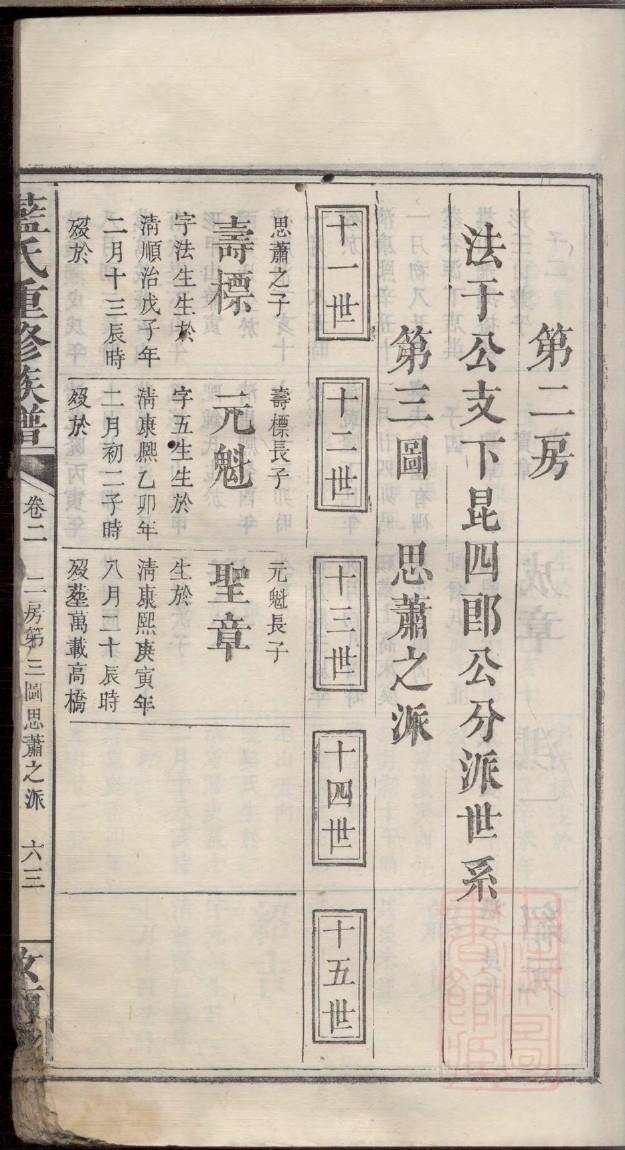 第二房
法于公支下昆四郎公分派世系
第三圖 思蕭之派
十一世
十二世
十三世
十四世
十五世
思蕭之子
壽標
字法生生於
清順治戊子年
二月十三辰時
歿於
壽標長子
元魁
字五生生於
清康熙乙卯年
二月初二子時
歿於
元魁長子
聖章
生於
清康熙庚寅年
八月二十辰時
歿塟萬載高橋
藍氏重修族譜
卷二
二房第三圖思蕭之派
六三